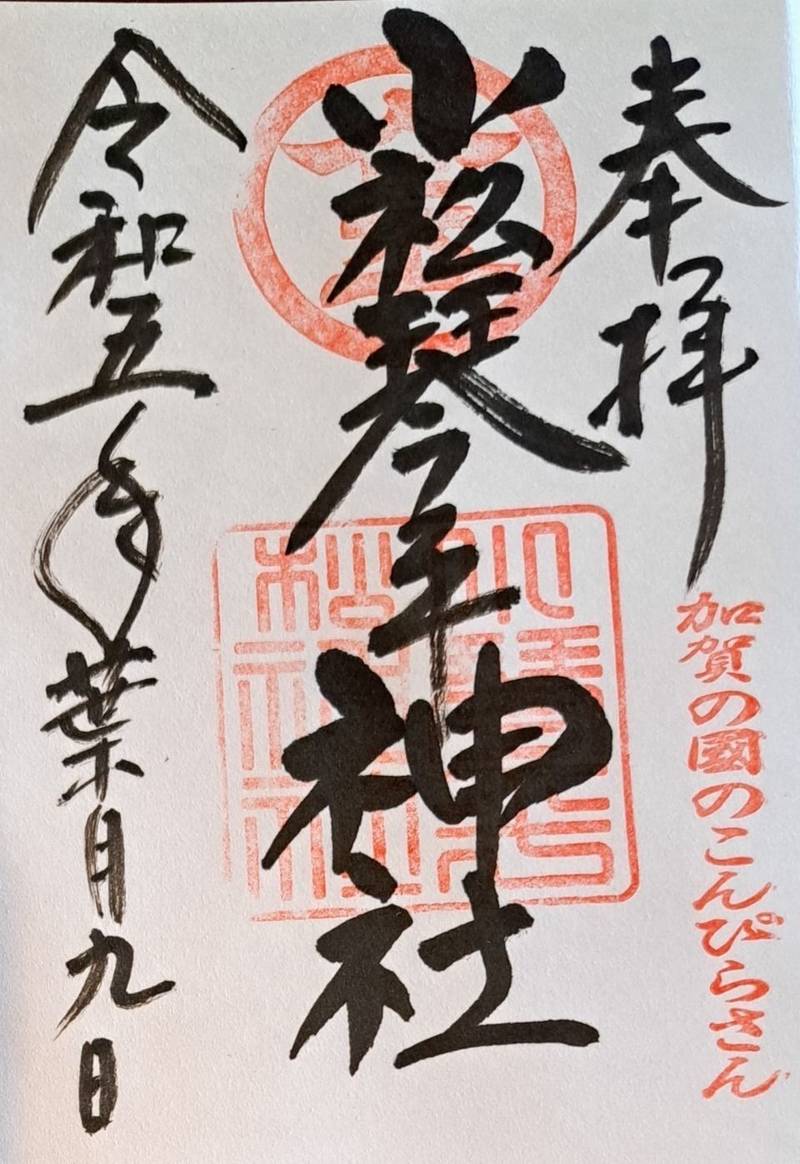 奉拝
加賀の國のこんぴらさん
小松琴平神社
令和五年葉月九日